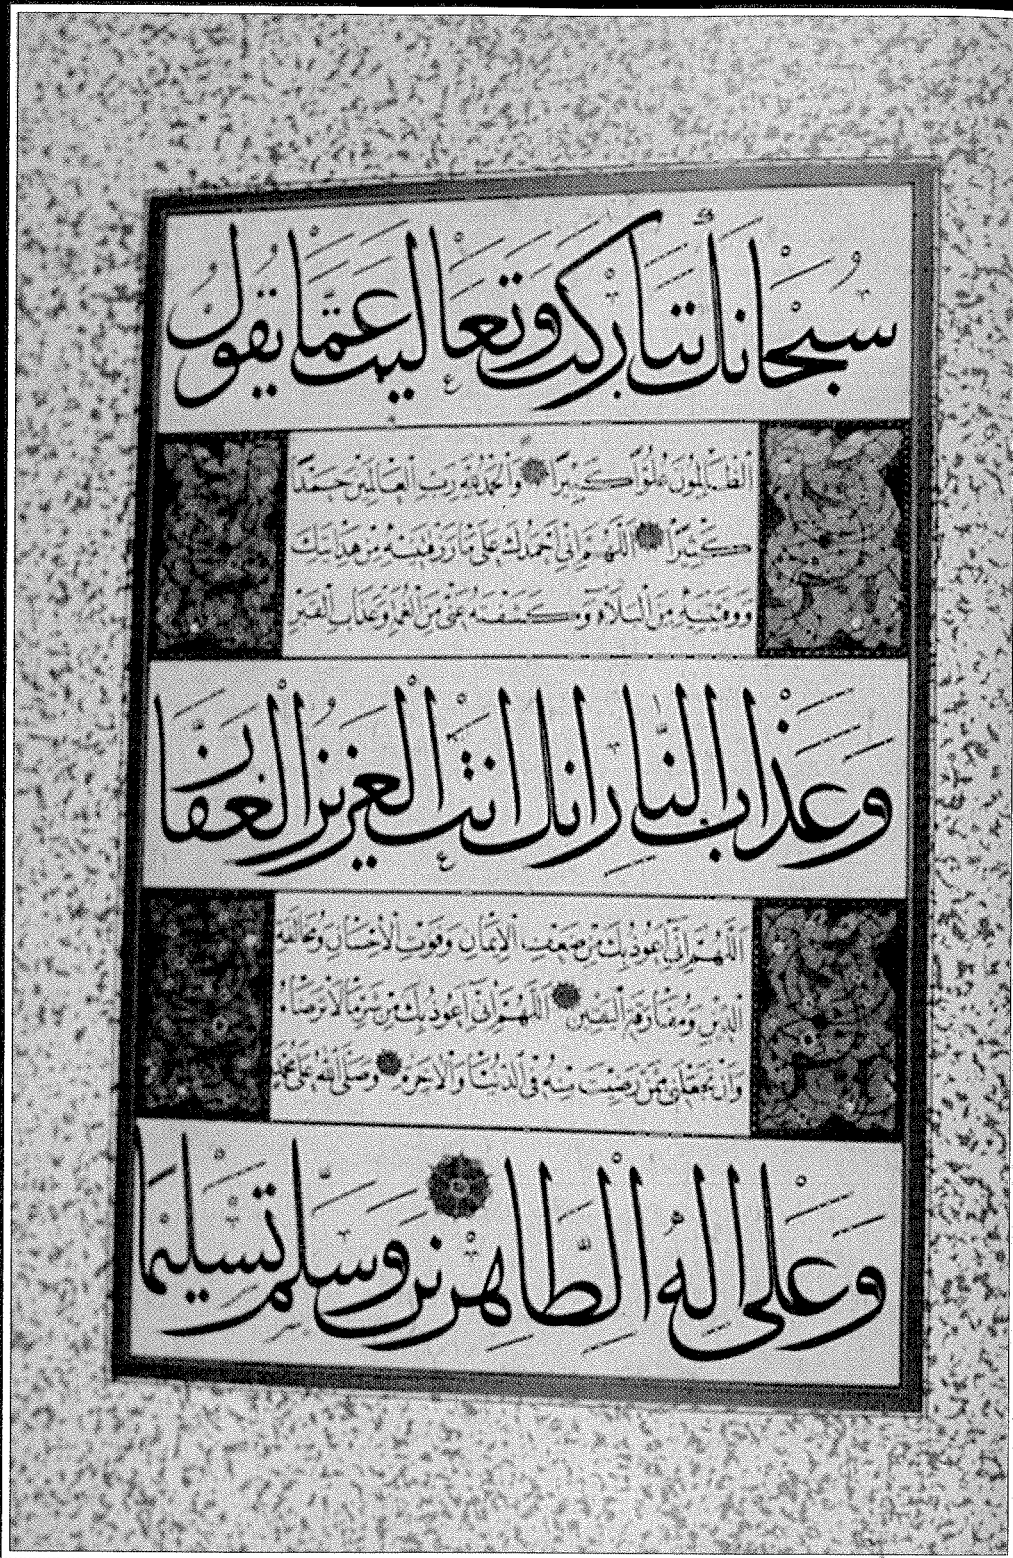 سُبْحَانَكَ تَبَارَكْتَ وَتَعَالَيْتَ عَمَّا يَقُولُ
الظَّالِمُونَ عُلُوًّا كَبِيرًا وَالْحَمْدُ لِلّٰهِ رَبِّ الْعَالَمِينَ حَمْدًا
كَثِيرًا اَللّٰهُمَّ اِنِّي اَحْمَدُكَ عَلَى مَا رَزَقْتَنِيهِ مِنْ هِدَايَتِكَ
وَوَقَيْتَنِيهِ مِنَ الْبَلَاءِ وَكَشَفْتَهُ عَنِّي مِنَ الْغَمِّ وَعَذَابِ الْقَبْرِ
وَعَذَابِ النَّارِ اِنَّكَ اَنْتَ الْعَزِيزُ الْغَفَّارُ
اَللّٰهُمَّ اِنِّي اَعُوذُ بِكَ مِنْ ضَعْفِ الْاِيمَانِ وَفَوْتِ الْاِحْسَانِ وَمُخَالَفَةِ
الدِّينِ وَمُفَارَقَةِ الْيَقِينِ اَللّٰهُمَّ اِنِّي اَعُوذُ بِكَ مِنْ شَرِّ مَا لَا تَرْضَاهُ
وَاَنْ تَجْعَلَنِي مِمَّنْ رَضِيتَ عَنْهُ فِي الدُّنْيَا وَالْاٰخِرَةِ وَصَلَّى اللّٰهُ عَلَى مُحَمَّدٍ
وَعَلَى اٰلِهِ الطَّاهِرِينَ وَسَلَّمَ تَسْلِيمًا